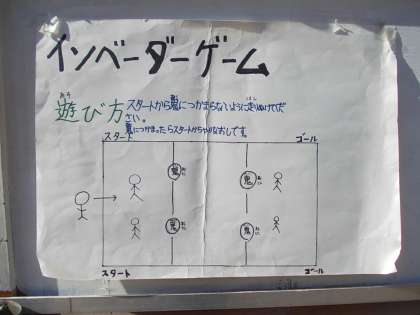 インベーダーゲーム
あそ
遊び方
スタートから鬼につかまらないように走りぬけてくだ
さい。
鬼につかまったらスタートからやりなおしです。
スタート
ゴール
鬼
鬼
鬼
鬼
スタート
ゴール